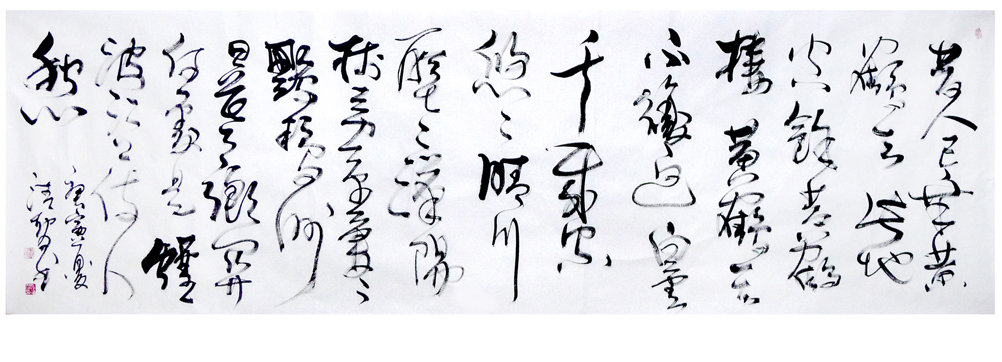 昔人已乘黄
鶴去此地
空餘黄鶴
樓黄鶴一去
不復返白雲
千載空
悠悠晴川
歷歷漢陽
樹芳草萋萋
鸚鵡洲
日暮鄉關
何處是煙
波江上使人
愁
庚寅夏